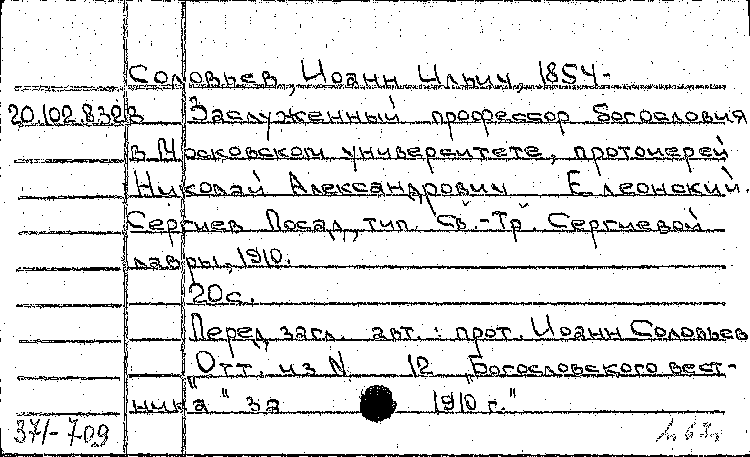 Соловьев, Иоанн Ильич, 1854-
20.102.8.328 Заслуженный профессор богословия
в Московском университете, протоиерей
Николай Александрович Елеонский.
Сергиев Посад, тип. Св.-Тр. Сергиевой
лавры, 1910.
20с.
Перед загл. авт.: прот. Иоанн Соловьев
Отт. из N 12 "Богословского вест-
ника" за 1910 г."
371-709